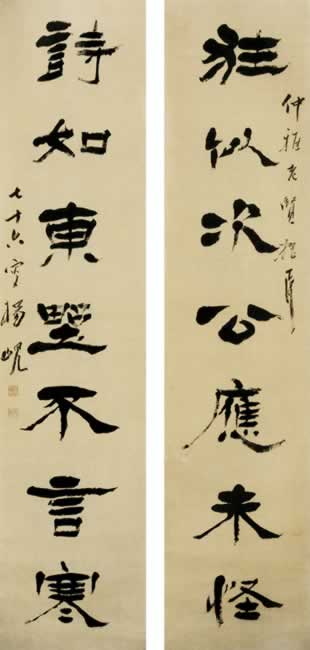 仲雅老賢姪屬
狂似次公應未怪
詩如東野不言寒
七十六叟楊峴